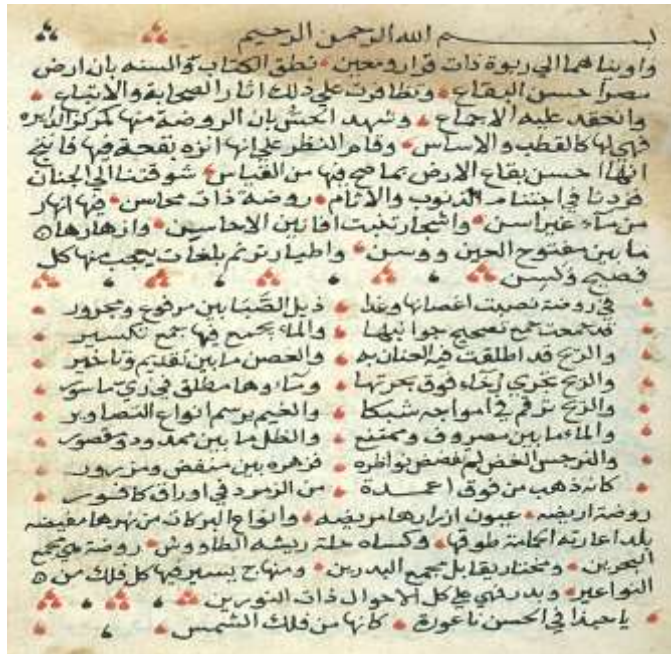 بسم الله الرحمن الرحيم
واويناهما الي ربوة ذات قرار ومعين نطق الكتاب والسنه بان ارض
مصرا حسن البقاع وتظافرت علي ذلك اثار الصحابة والاتباع
وانعقد عليه الاجماع وشهد الحسن بان الروضة منها كمركز الدايره
فهي لها كالقطب والاساس وقام النظر علي انها انزه بقعة فيها
انها احسن بقاع الارض بما صح فيها من القياس شوقتنا الي الجنان
فزدنا في اجتناب الذنوب والاثام روضة ذات محاسن فيها انهار
من ماء غير اسن واشجار تنبت افانين الاحاسين وازهارها
ما بين مفتوح العين ووسن واطيار ترنم بلغات يعجب منها كل
فصيح ولسن
في روضة نصبت اغصانها وغدا ذيل الصَّبَا بين مرفوع ومجرور
قد جمعت جمع تصحيح جوانبها والماء يجمع فيها جمع تكسير
والريح قد اطلقت فيه العنان به والغصن ما بين تقديم وتاخير
والريح تجري رخاء فوق بحرتها وماءوها مطلق في زي ماسور
والريح ترقم في امواجه شبكا والغيم يرسم انواع التصاوير
والماء ما بين مصروف وممتنع والظل ما بين ممدود ومقصور
والنرجس الغض لم تغضض نواظره فزهره بين منفض ومزرور
كانه ذهب من فوق اعمدة من الزمرد في اوراق كافور
روضة اريضه عيون ازرارها مريضه وانواع البركات من نهرها مفيضه
بلد اعارته الحمامة طوقها وكساه حلة ريشه الطاووس روضة هي مجمع
البحرين ومختار يقابل مجمع البدرين ومنهاج يسير فيها كل فلك من
النواعير وبدر فهي علي كل الاحوال ذات النورين
يا حبذا في الحسن ناعورة كانها من فلك الشمس